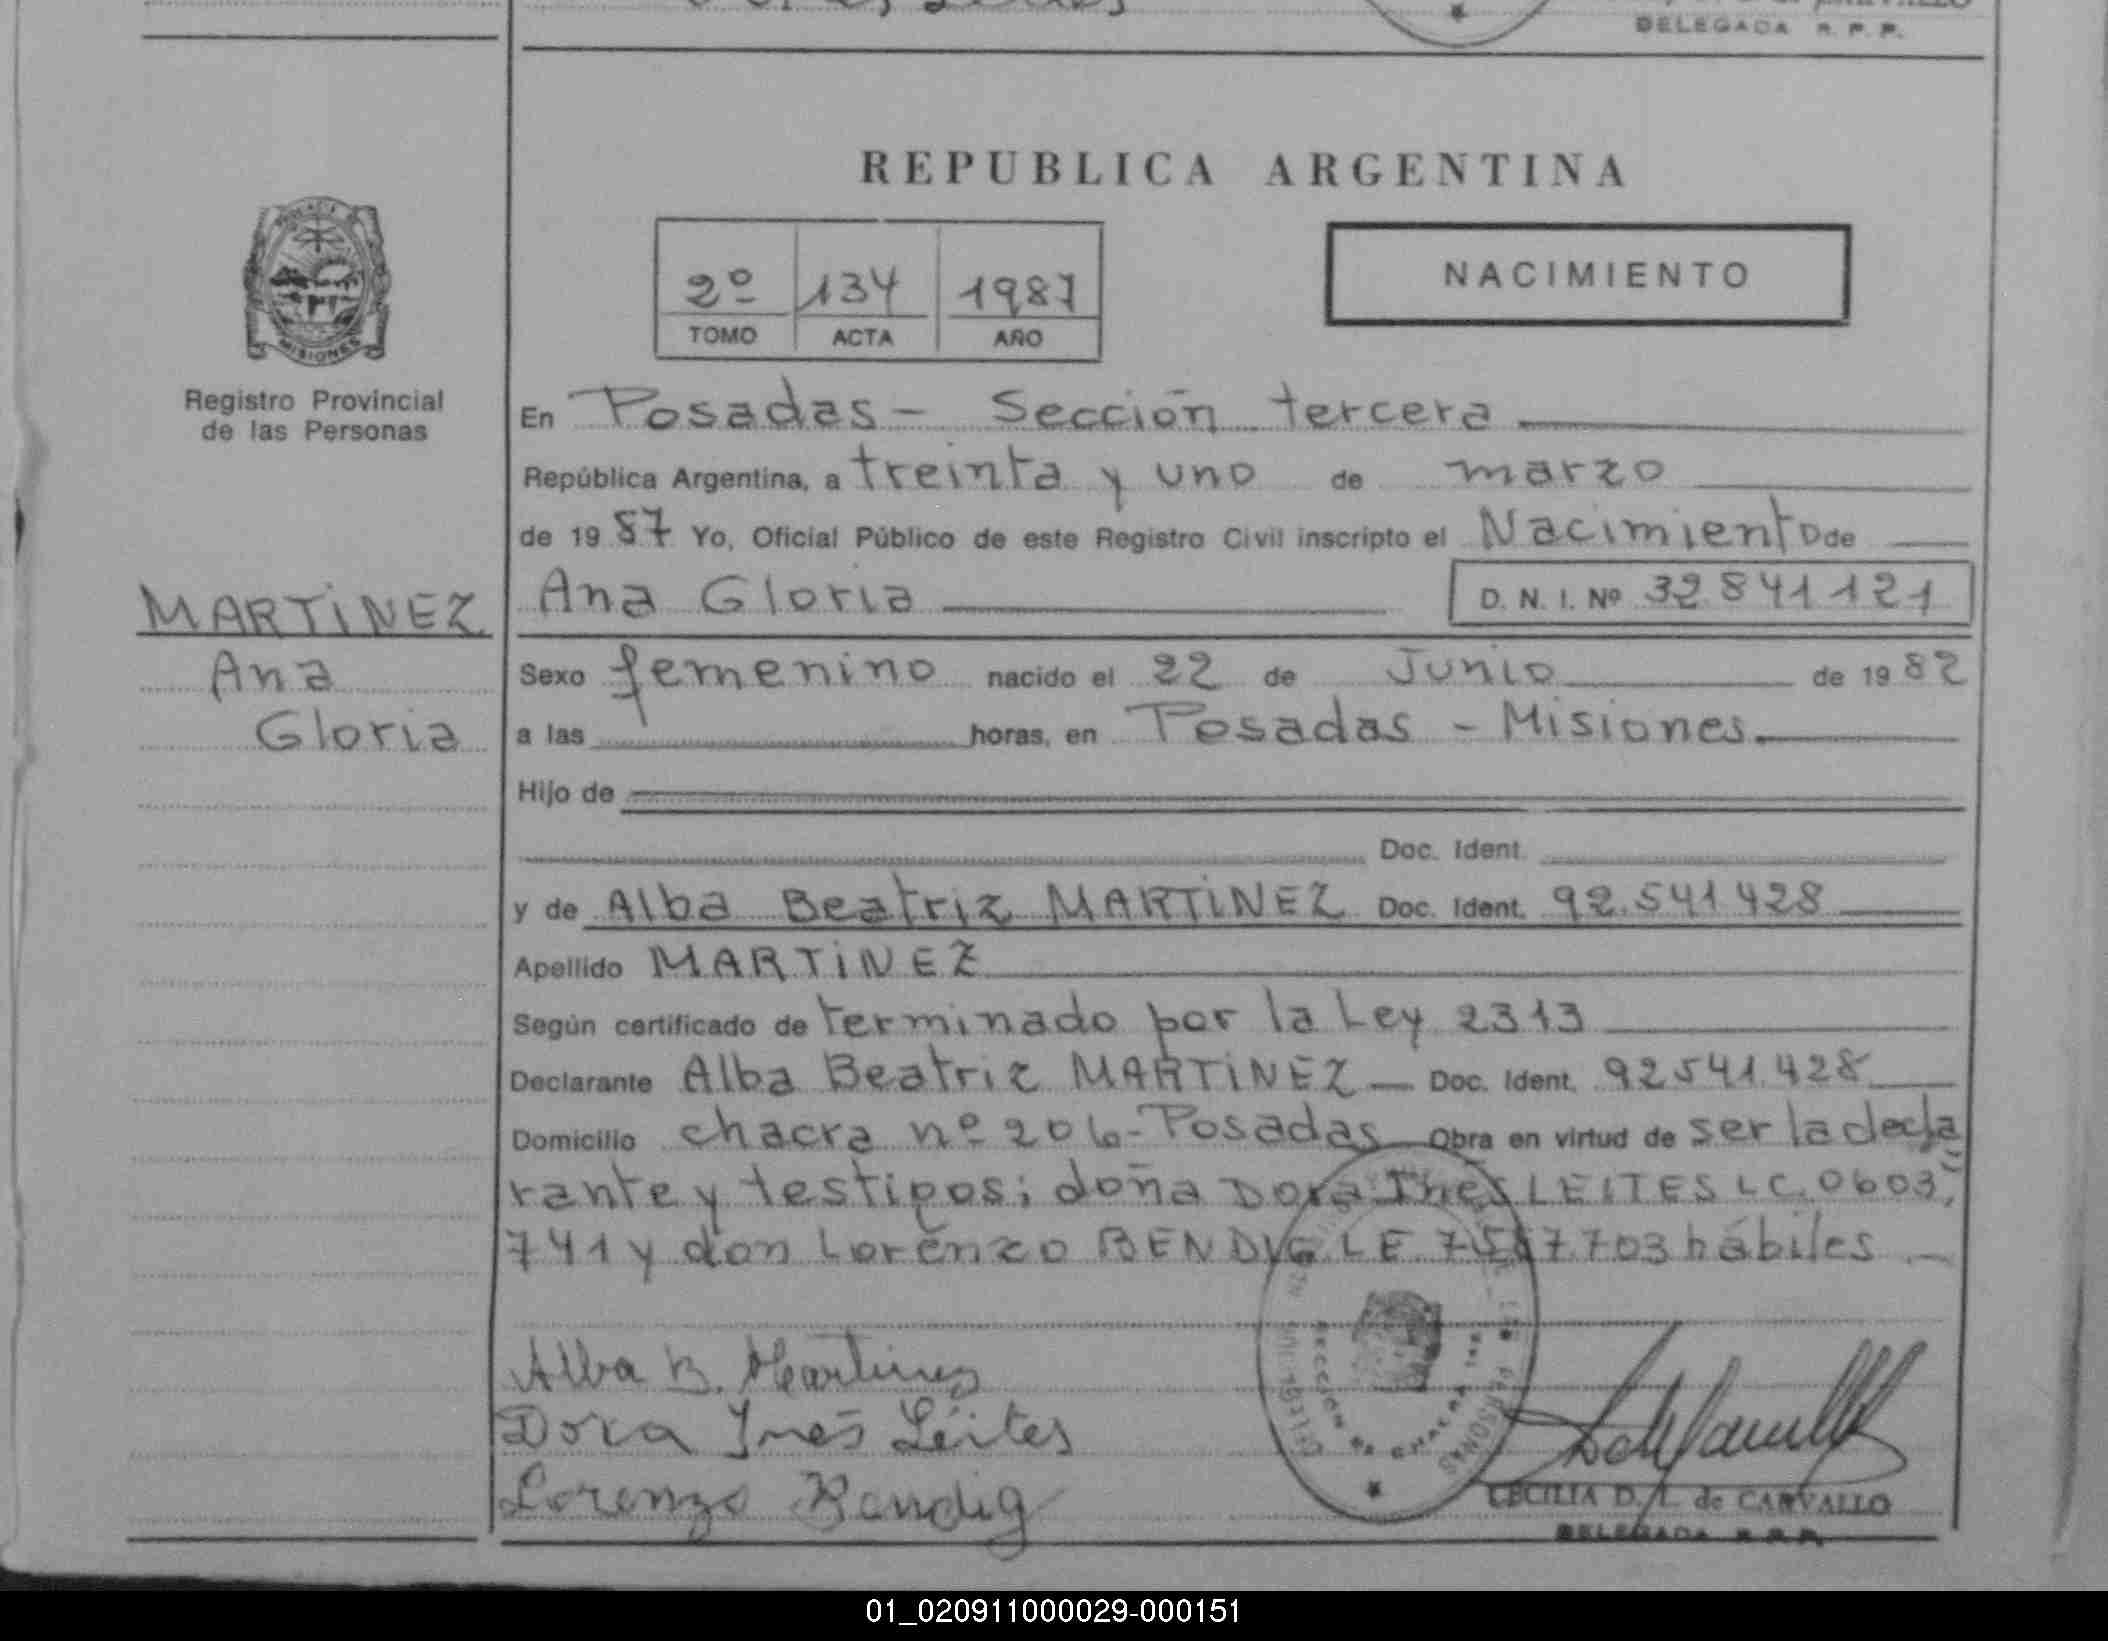 DELEGADA R. P. P.
REPUBLICA ARGENTINA
2º 134 1987
TOMO ACTA AÑO
NACIMIENTO
MISIONES
Registro Provincial
de las Personas
MARTINEZ
Ana
Gloria
En Posadas - Sección tercera
República Argentina, a treinta y uno de marzo
de 1987 Yo, Oficial Público de este Registro Civil inscripto el Nacimiento de
Ana Gloria D. N. I. Nº 32.841.121
Sexo femenino nacido el 22 de Junio de 1982
a las horas, en Posadas - Misiones.
Hijo de
Doc. Ident.
y de Alba Beatriz MARTINEZ Doc. Ident. 92.541.428
Apellido MARTINEZ
Según certificado de terminado por la Ley 2313
Declarante Alba Beatriz MARTINEZ Doc. Ident. 92.541.428
Domicilio chacra nº 206 - Posadas Obra en virtud de ser la decla
rante y testigos; doña Dora Inés LEITES LC. 0603
741 y don Lorenzo BENDIG LE hábiles
Alba B. Martinez
Dora Inés Léites
Lorenzo Bendig
CECILIA D. L. de CARVALLO
DELEGADA R. P. P.
01_020911000029-000151